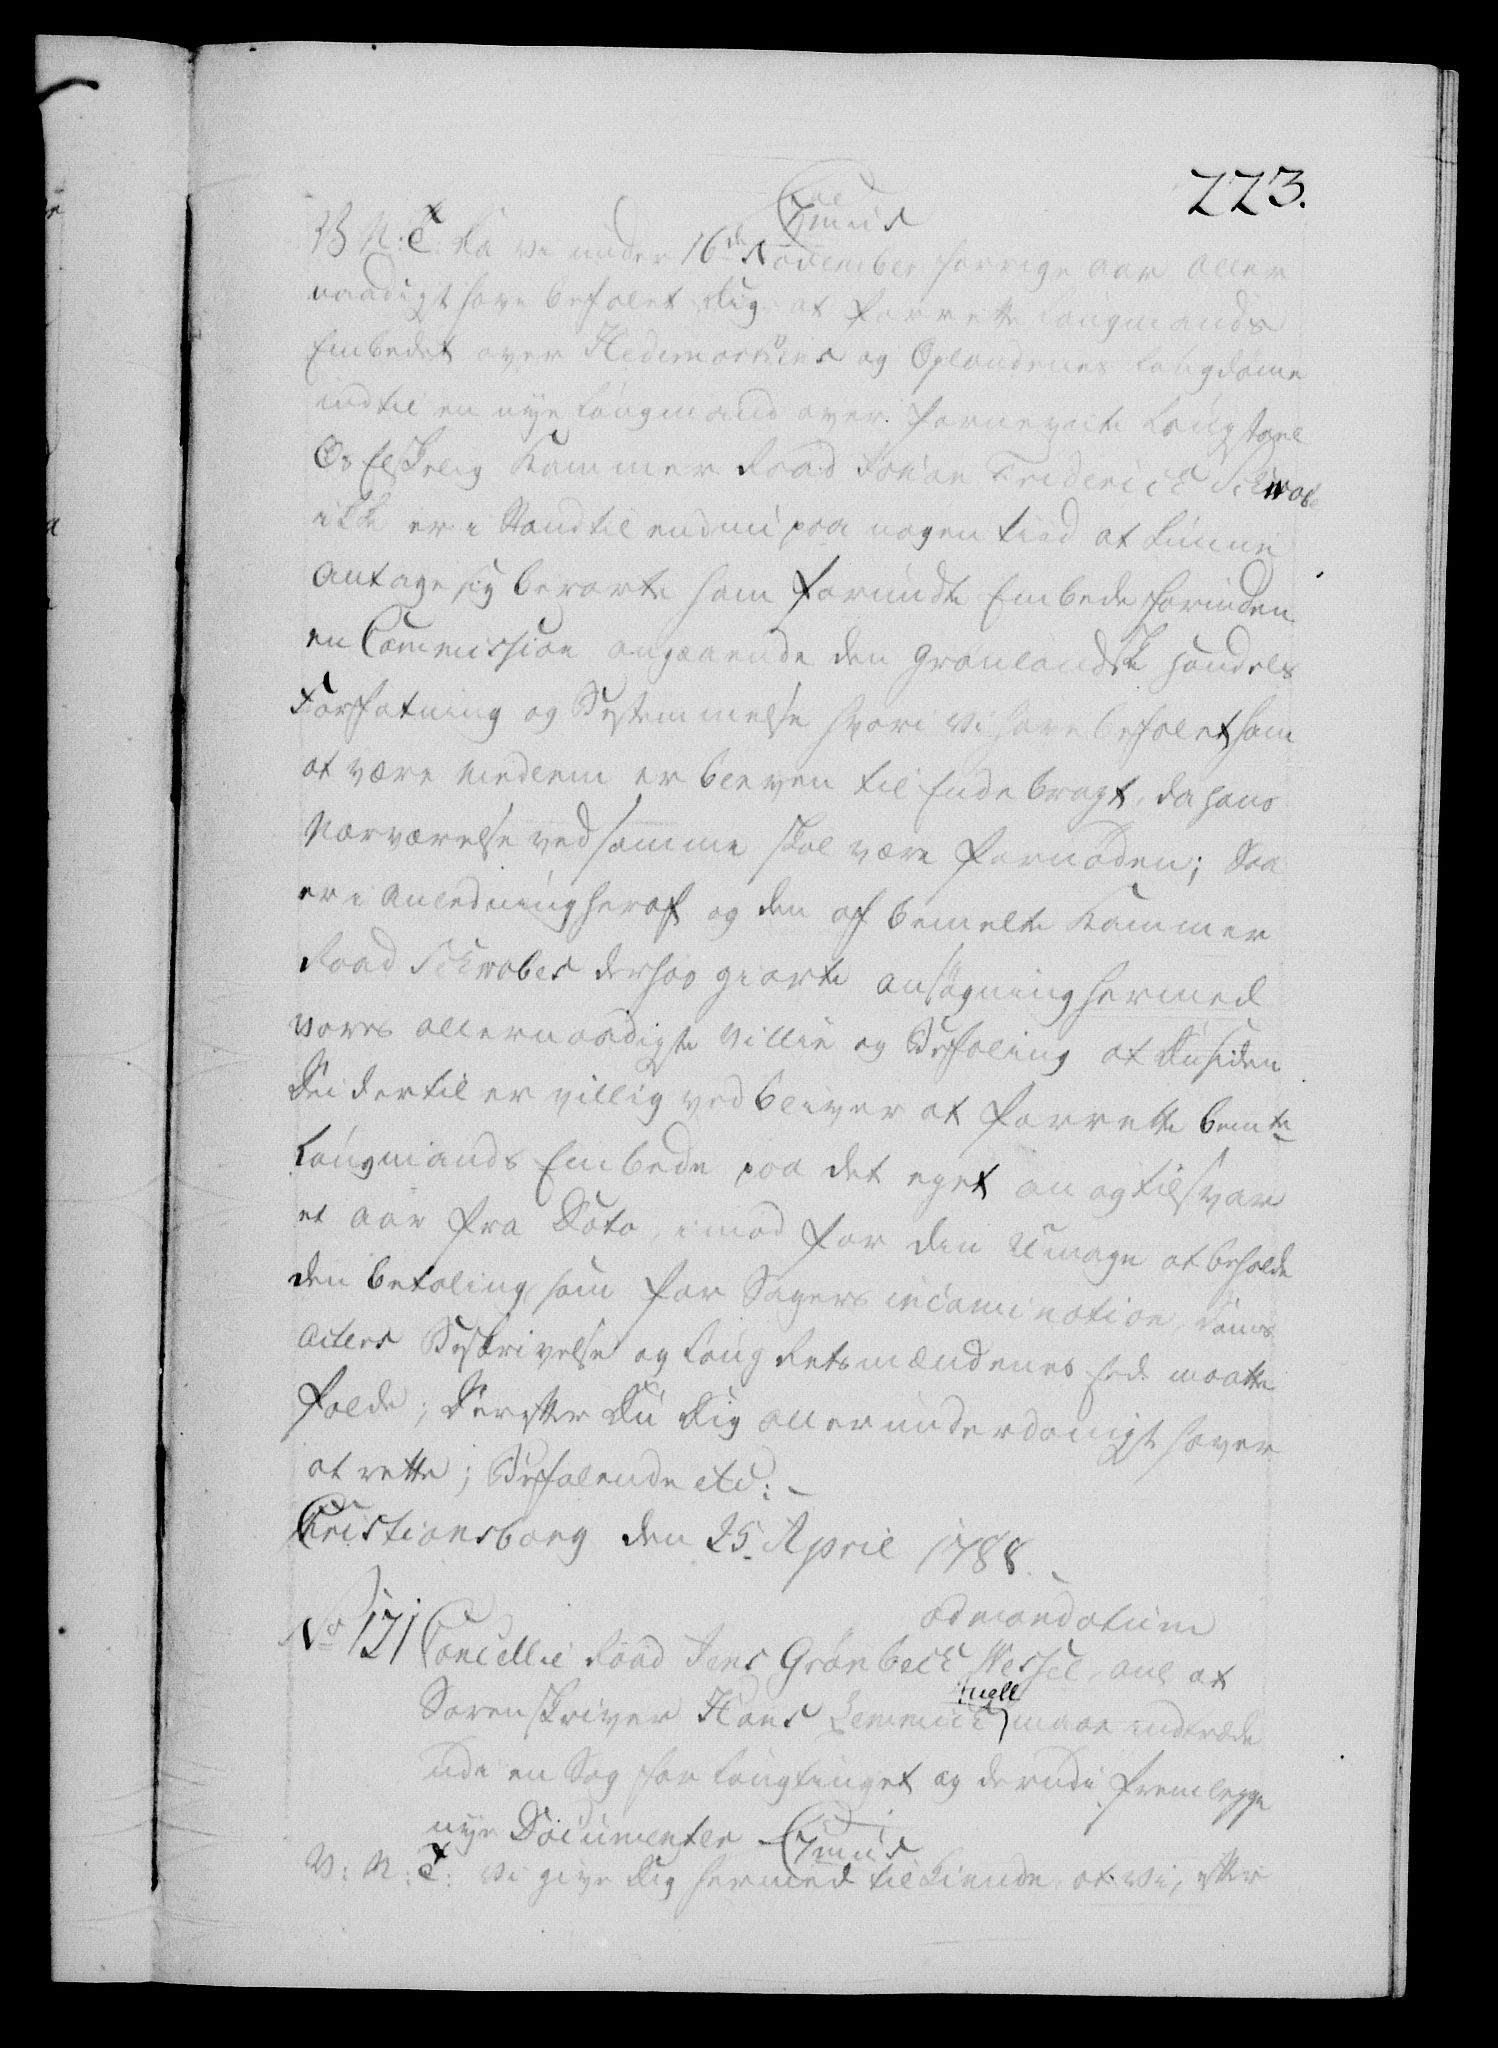 223.
V. N: C. Da vi under 16de November forrige Aar aller
naadigst have befalet Dig at forrette Laugmands
Embedet over Hedemarkens og Oplandenes Laugdømme
indtil en nye Laugmand over fornevnte Laugstoel
Os Elskelig Kammer Raad Johan Friderich Schwabe
ikke er i Stand til endnu paa nogen tiid at kunne
antage sig berørte ham forundte Embede forinden
en Commission angaaende den Grønlandske Handels
Forfatning og Bestemmelse hvori vi have befalet ham
at være Medlem er bleven til Ende bragt, da hans
Nærværelse ved samme skal være fornøden; Saa
er i Anledning heraf og den af bemelte Kammer
Raad Schwabes derhos giorte Ansøgning hermed
vores allernaadigste Villie og Befaling at Du siden
Du dertil er villig vedbliver at forrette bemte
Laugmands Embede paa det eget an og tilsvar
et Aar fra Dato, imod for din Umage at beholde
den betaling som for Sagers incamination, Doms
acters Beskrivelse og Laug Rets mændenes Eed maatte
falde; Derefter Du Dig allerunderdanigst haver
at rette; Befalende etc:
Christiansborg den 25. April 1788.
ad mandatum
No 171 Cancellie Raad Jens Grønbech Wessel, anl at
Sorenskriver Hans Lemmich Juell maae indtræde
udi en Sag for Laugtinget og derudi fremlegge
nye Documenter
V: N: C: Vi give Dig hermed tilkiende, at vi, efter